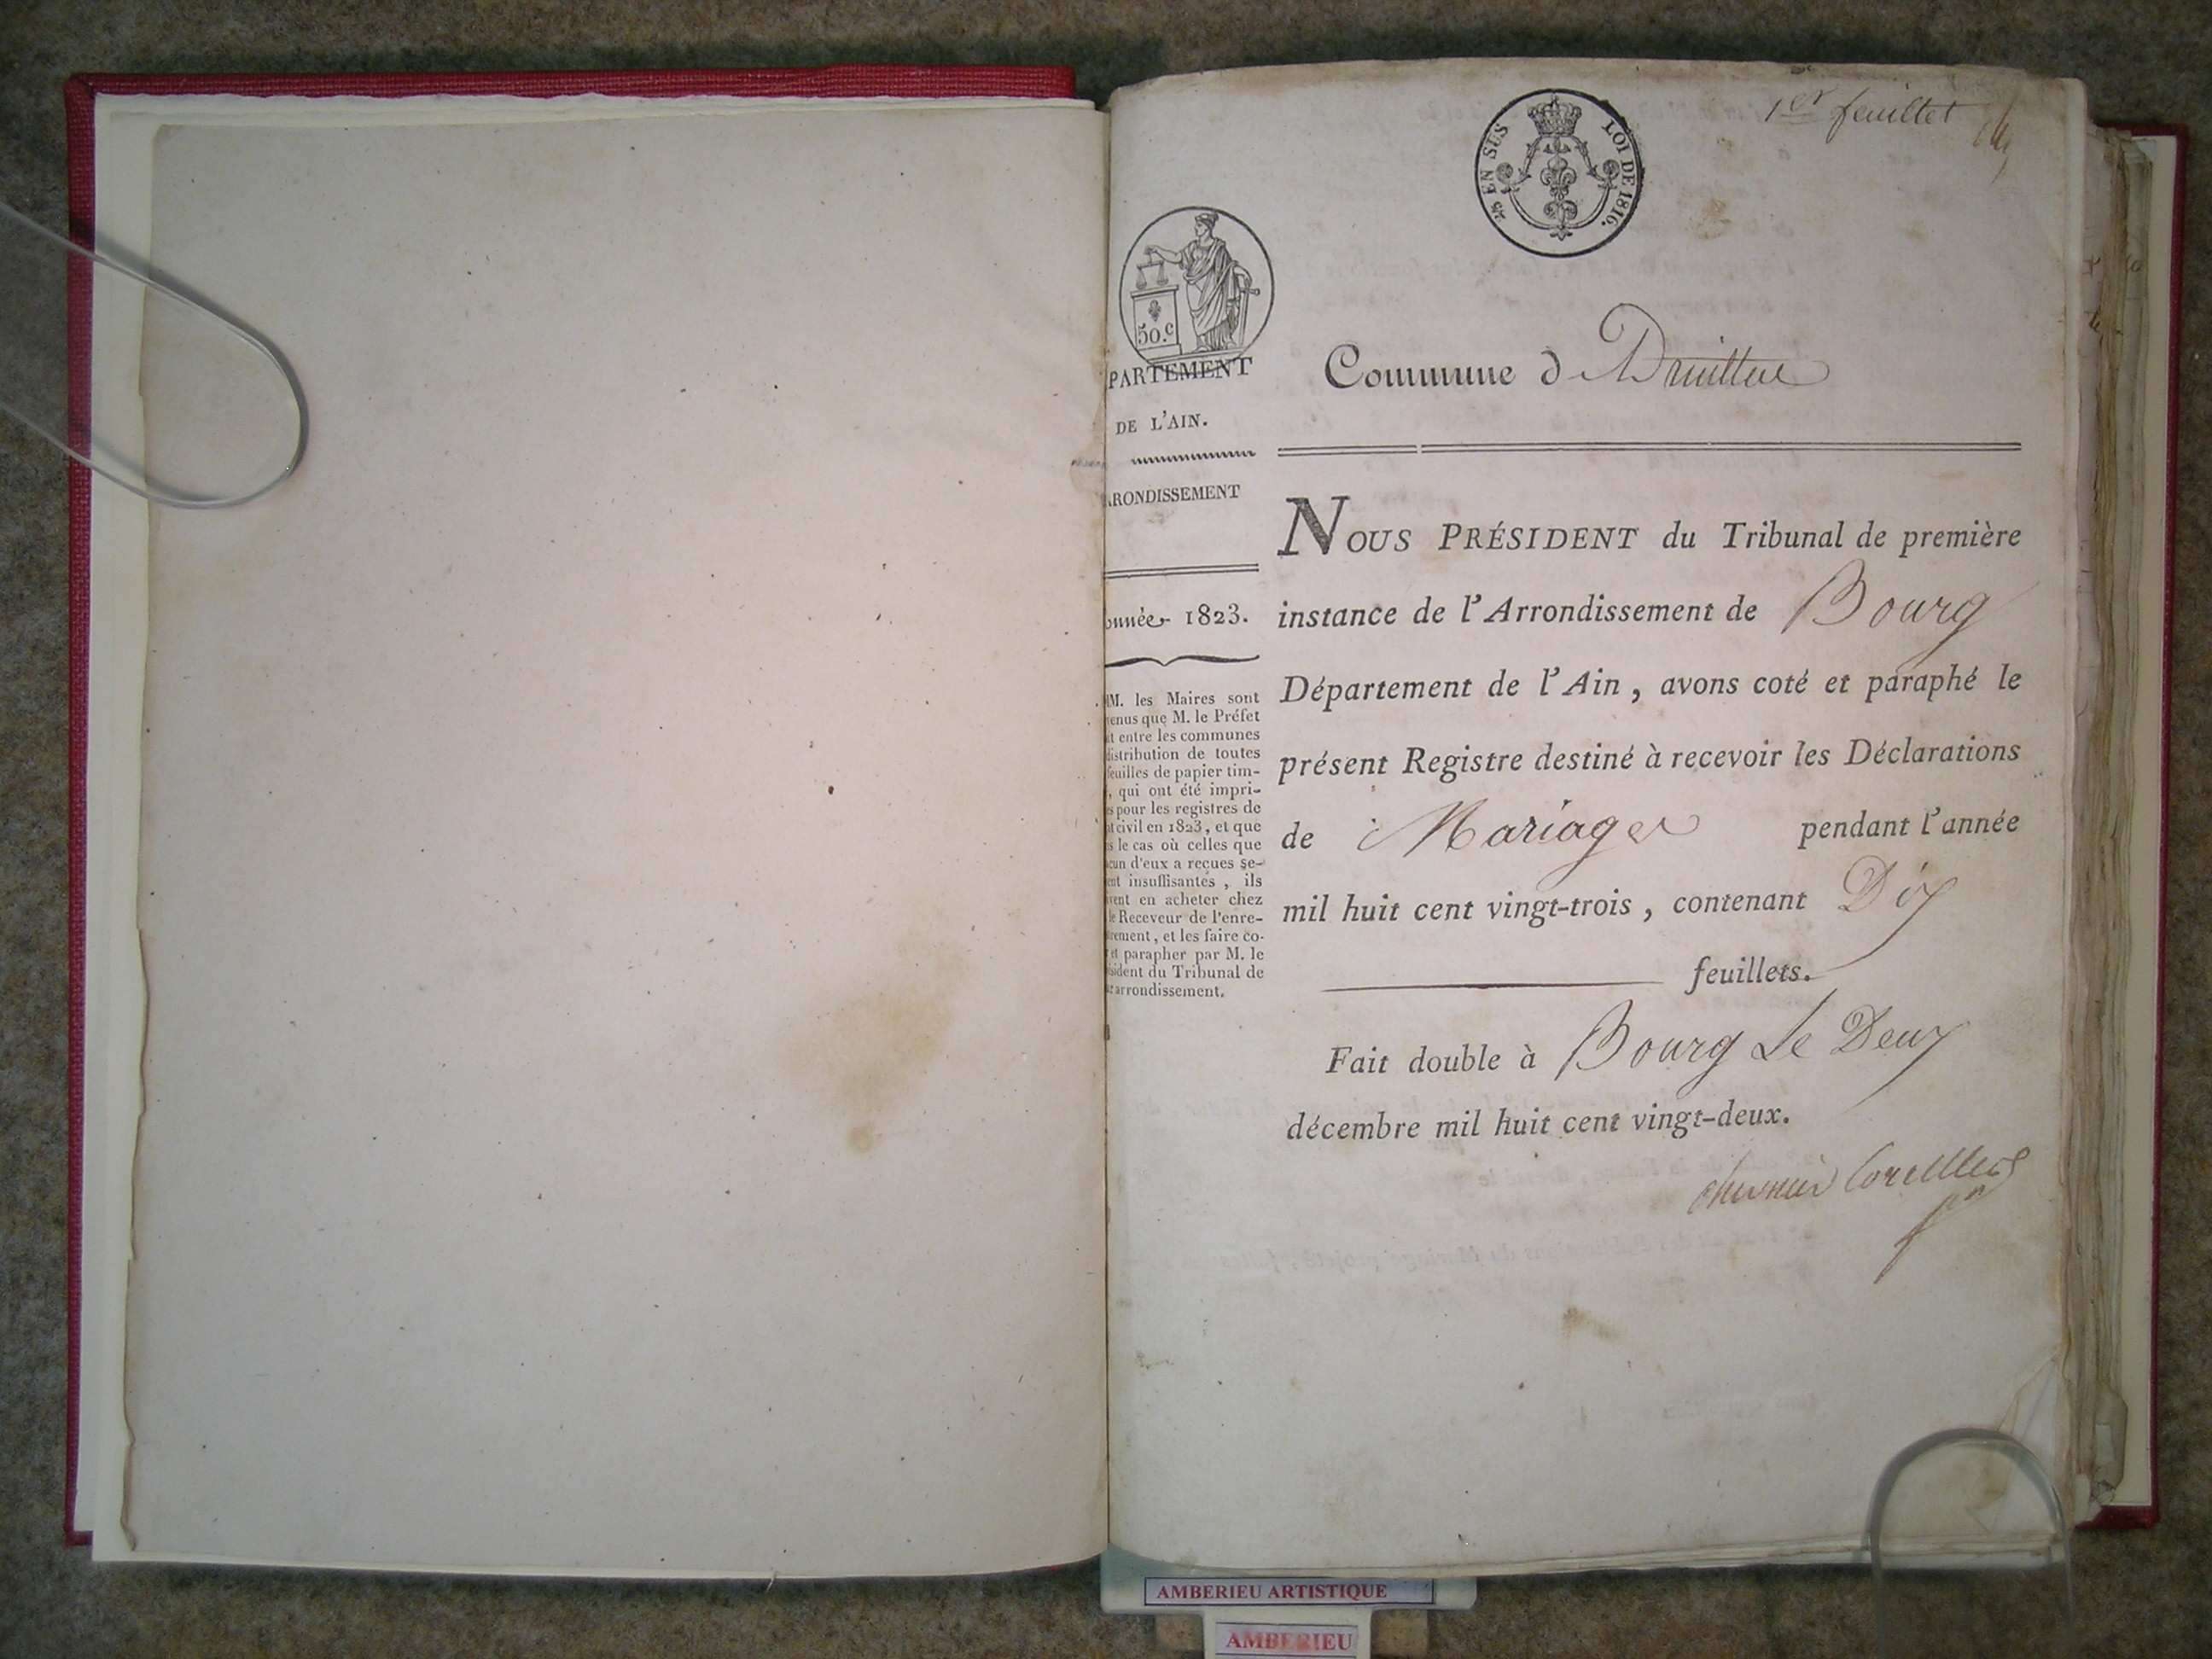 1er feuillet
25 EN SUS LOI DE 1816.
50.c
PARTEMENT
DE L'AIN.
RONDISSEMENT
nnée 1823.
M. les Maires sont
enus que M. le Préfet
t entre les communes
distribution de toutes
feuilles de papier tim-
, qui ont été impri-
s pour les registres de
t civil en 1823, et que
s le cas où celles que
cun d'eux a reçues se-
ent insuffisantes, ils
vent en acheter chez
le Receveur de l'enre-
rement, et les faire co-
et parapher par M. le
sident du Tribunal de
r arrondissement.
Commune d
NOUS PRÉSIDENT du Tribunal de première
instance de l'Arrondissement de Bourg
Département de l'Ain, avons coté et paraphé le
présent Registre destiné à recevoir les Déclarations
de Mariages pendant l'année
mil huit cent vingt-trois, contenant Dix
feuillets.
Fait double à Bourg Le Deux
décembre mil huit cent vingt-deux.
AMBERIEU ARTISTIQUE
AMBERIEU